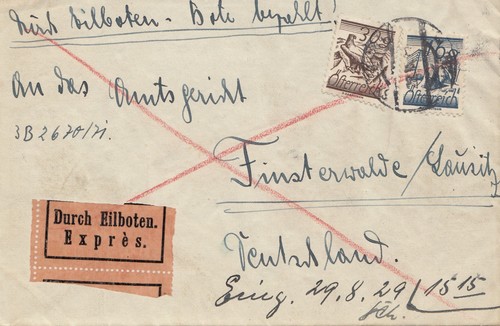 Durch Eilboten - Bote bezahlt!
An das Amtsgericht
3B2670/71.
Finsterwalde / Lausitz
Deutschland.
Eing. 29.8.29 15 15
Durch Eilboten.
Exprès.
30
Österreich
Österreich